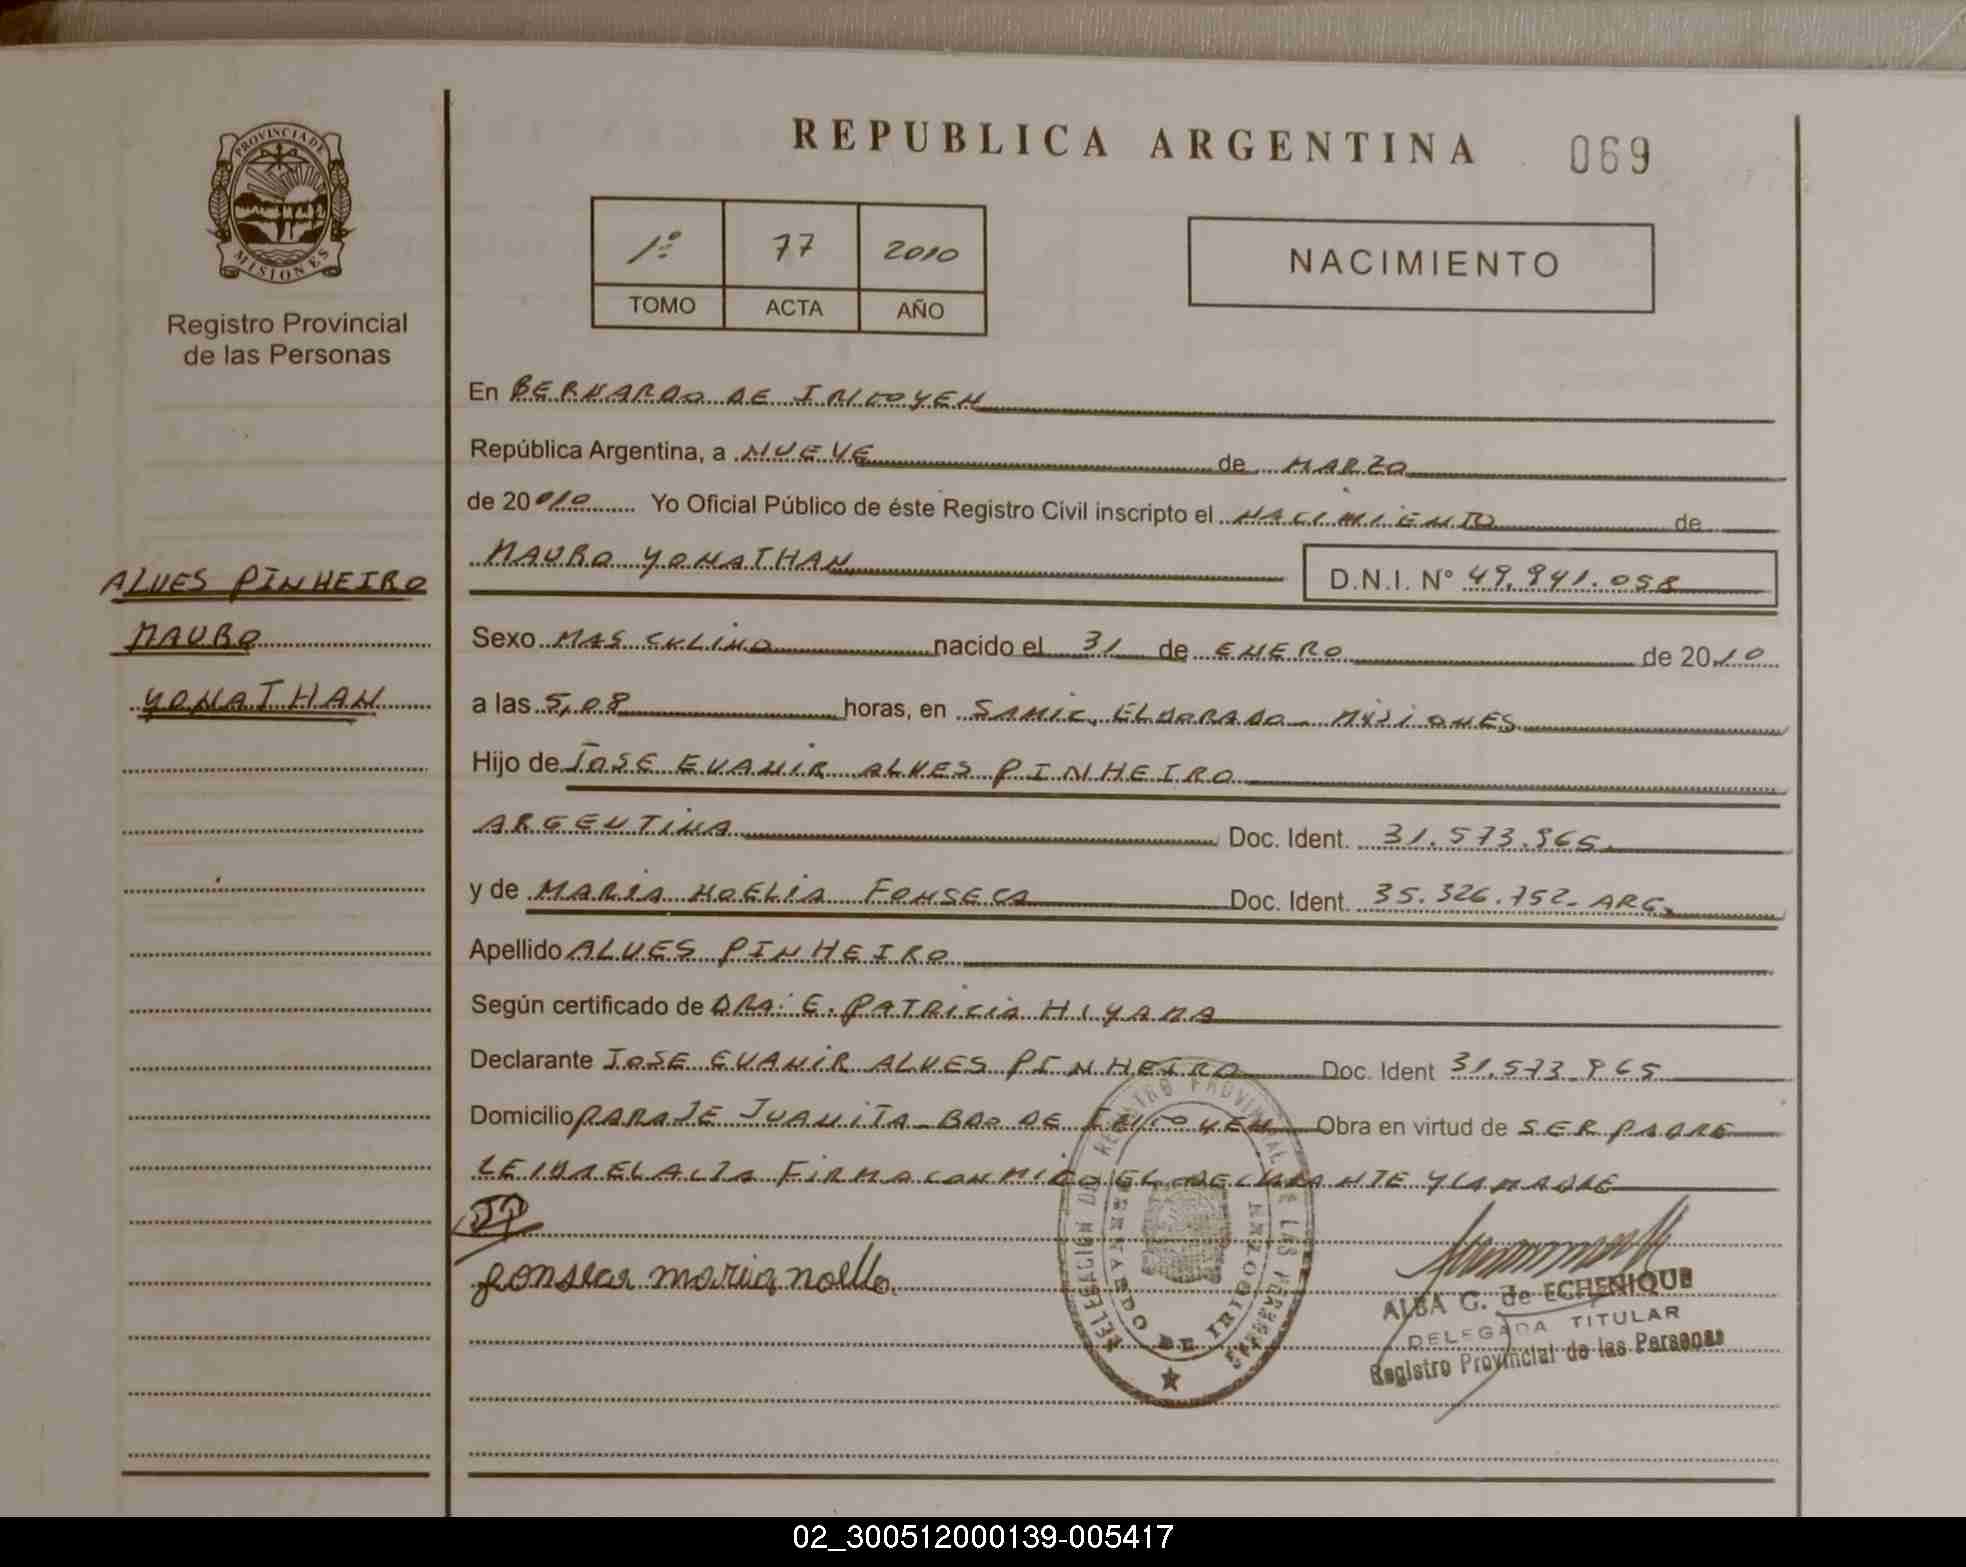 REPUBLICA ARGENTINA
069
PROVINCIA DE
MISIONES
Registro Provincial
de las Personas
1º 77 2010
TOMO ACTA AÑO
NACIMIENTO
En BERNARDO DE IRIGOYEN
República Argentina, a NUEVE de MARZO
de 20 010 Yo Oficial Público de éste Registro Civil inscripto el NACIMIENTO de
MAURO YONATHAN D.N.I. Nº 49.941.058
ALVES PINHEIRO
MAURO
YONATHAN
Sexo MASCULINO nacido el 31 de ENERO de 2010
a las 5,08 horas, en SAMIC, ELDORADO - MISIONES
Hijo de JOSE EVANIR ALVES PINHEIRO
ARGENTINA Doc. Ident. 31.573.965.
y de MARIA NOELIA FONSECA Doc. Ident. 35.326.752- ARG.
Apellido ALVES PINHEIRO
Según certificado de DRA: E. PATRICIA HIYAMA
Declarante JOSE EVANIR ALVES PINHEIRO Doc. Ident 31.573.965
Domicilio PARAJE JUANITA - BDO DE IRIGOYEN Obra en virtud de SER PADRE
LEIDA EL ACTA FIRMA CONMIGO EL DECLARANTE Y LA MADRE
fonseca maria noelia
DELEGACION DEL REGISTRO PROVINCIAL DE LAS PERSONAS
BERNARDO DE IRIGOYEN
ALBA G. de ECHENIQUE
DELEGADA TITULAR
Registro Provincial de las Personas
02_300512000139-005417